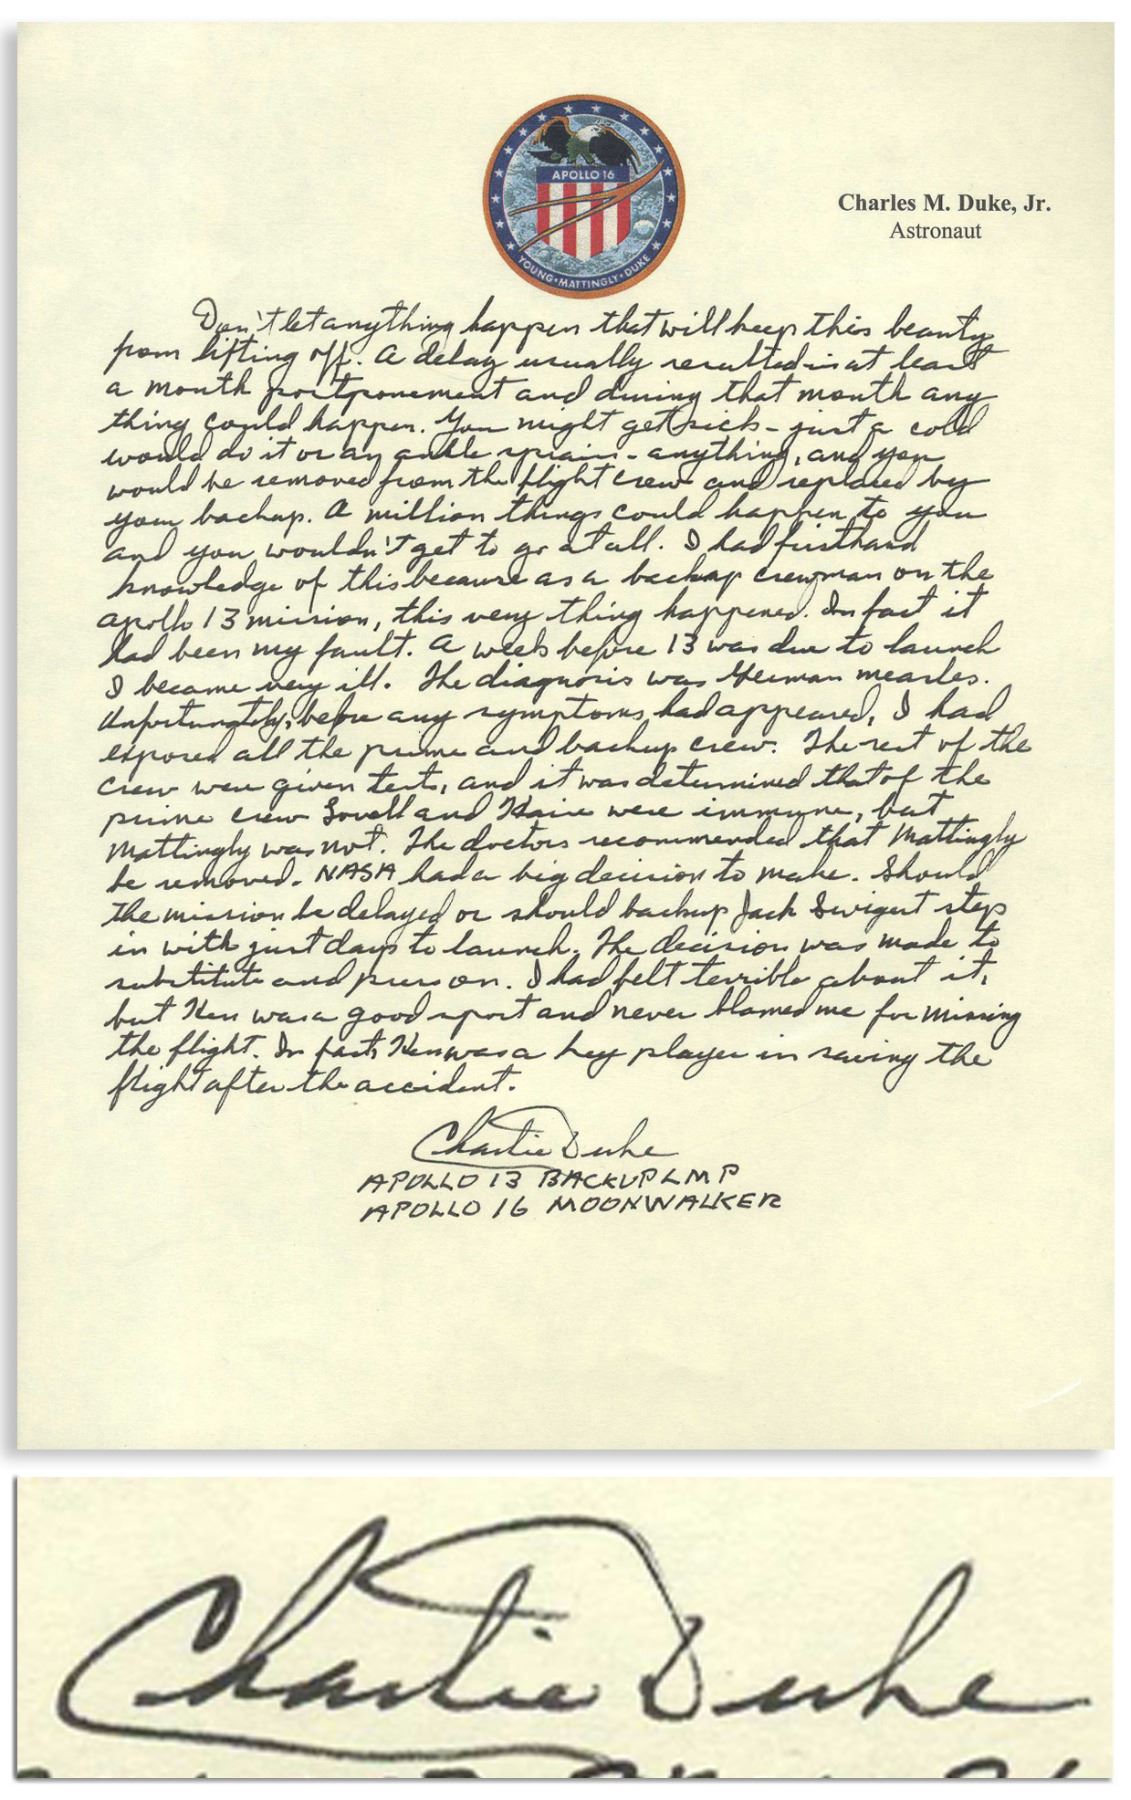 APOLLO 16
YOUNG • MATTINGLY • DUKE
Charles M. Duke, Jr.
Astronaut
Don't let anything happen that will keep this beauty
from lifting off. A delay usually resulted in at least
a month postponement and during that month any
thing could happen. You might get sick - just a cold
would do it or an ankle sprain - anything, and you
would be removed from the flight crew and replaced by
your backup. A million things could happen to you
and you wouldn't get to go at all. I had firsthand
knowledge of this because as a backup crewman on the
Apollo 13 mission, this very thing happened. In fact it
had been my fault. A week before 13 was due to launch
I became very ill. The diagnosis was German measles.
Unfortunately, before any symptoms had appeared, I had
exposed all the prime and backup crew. The rest of the
crew were given tests, and it was determined that of the
prime crew Lovell and Haise were immune, but
Mattingly was not. The doctors recommended that Mattingly
be removed. NASA had a big decision to make. Should
the mission be delayed or should backup Jack Swigert step
in with just days to launch. The decision was made to
substitute and press on. I had felt terrible about it,
but Ken was a good sport and never blamed me for missing
the flight. In fact, Ken was a key player in saving the
flight after the accident.
Charlie Duke
APOLLO 13 BACKUP LMP
APOLLO 16 MOONWALKER
Charlie Duke